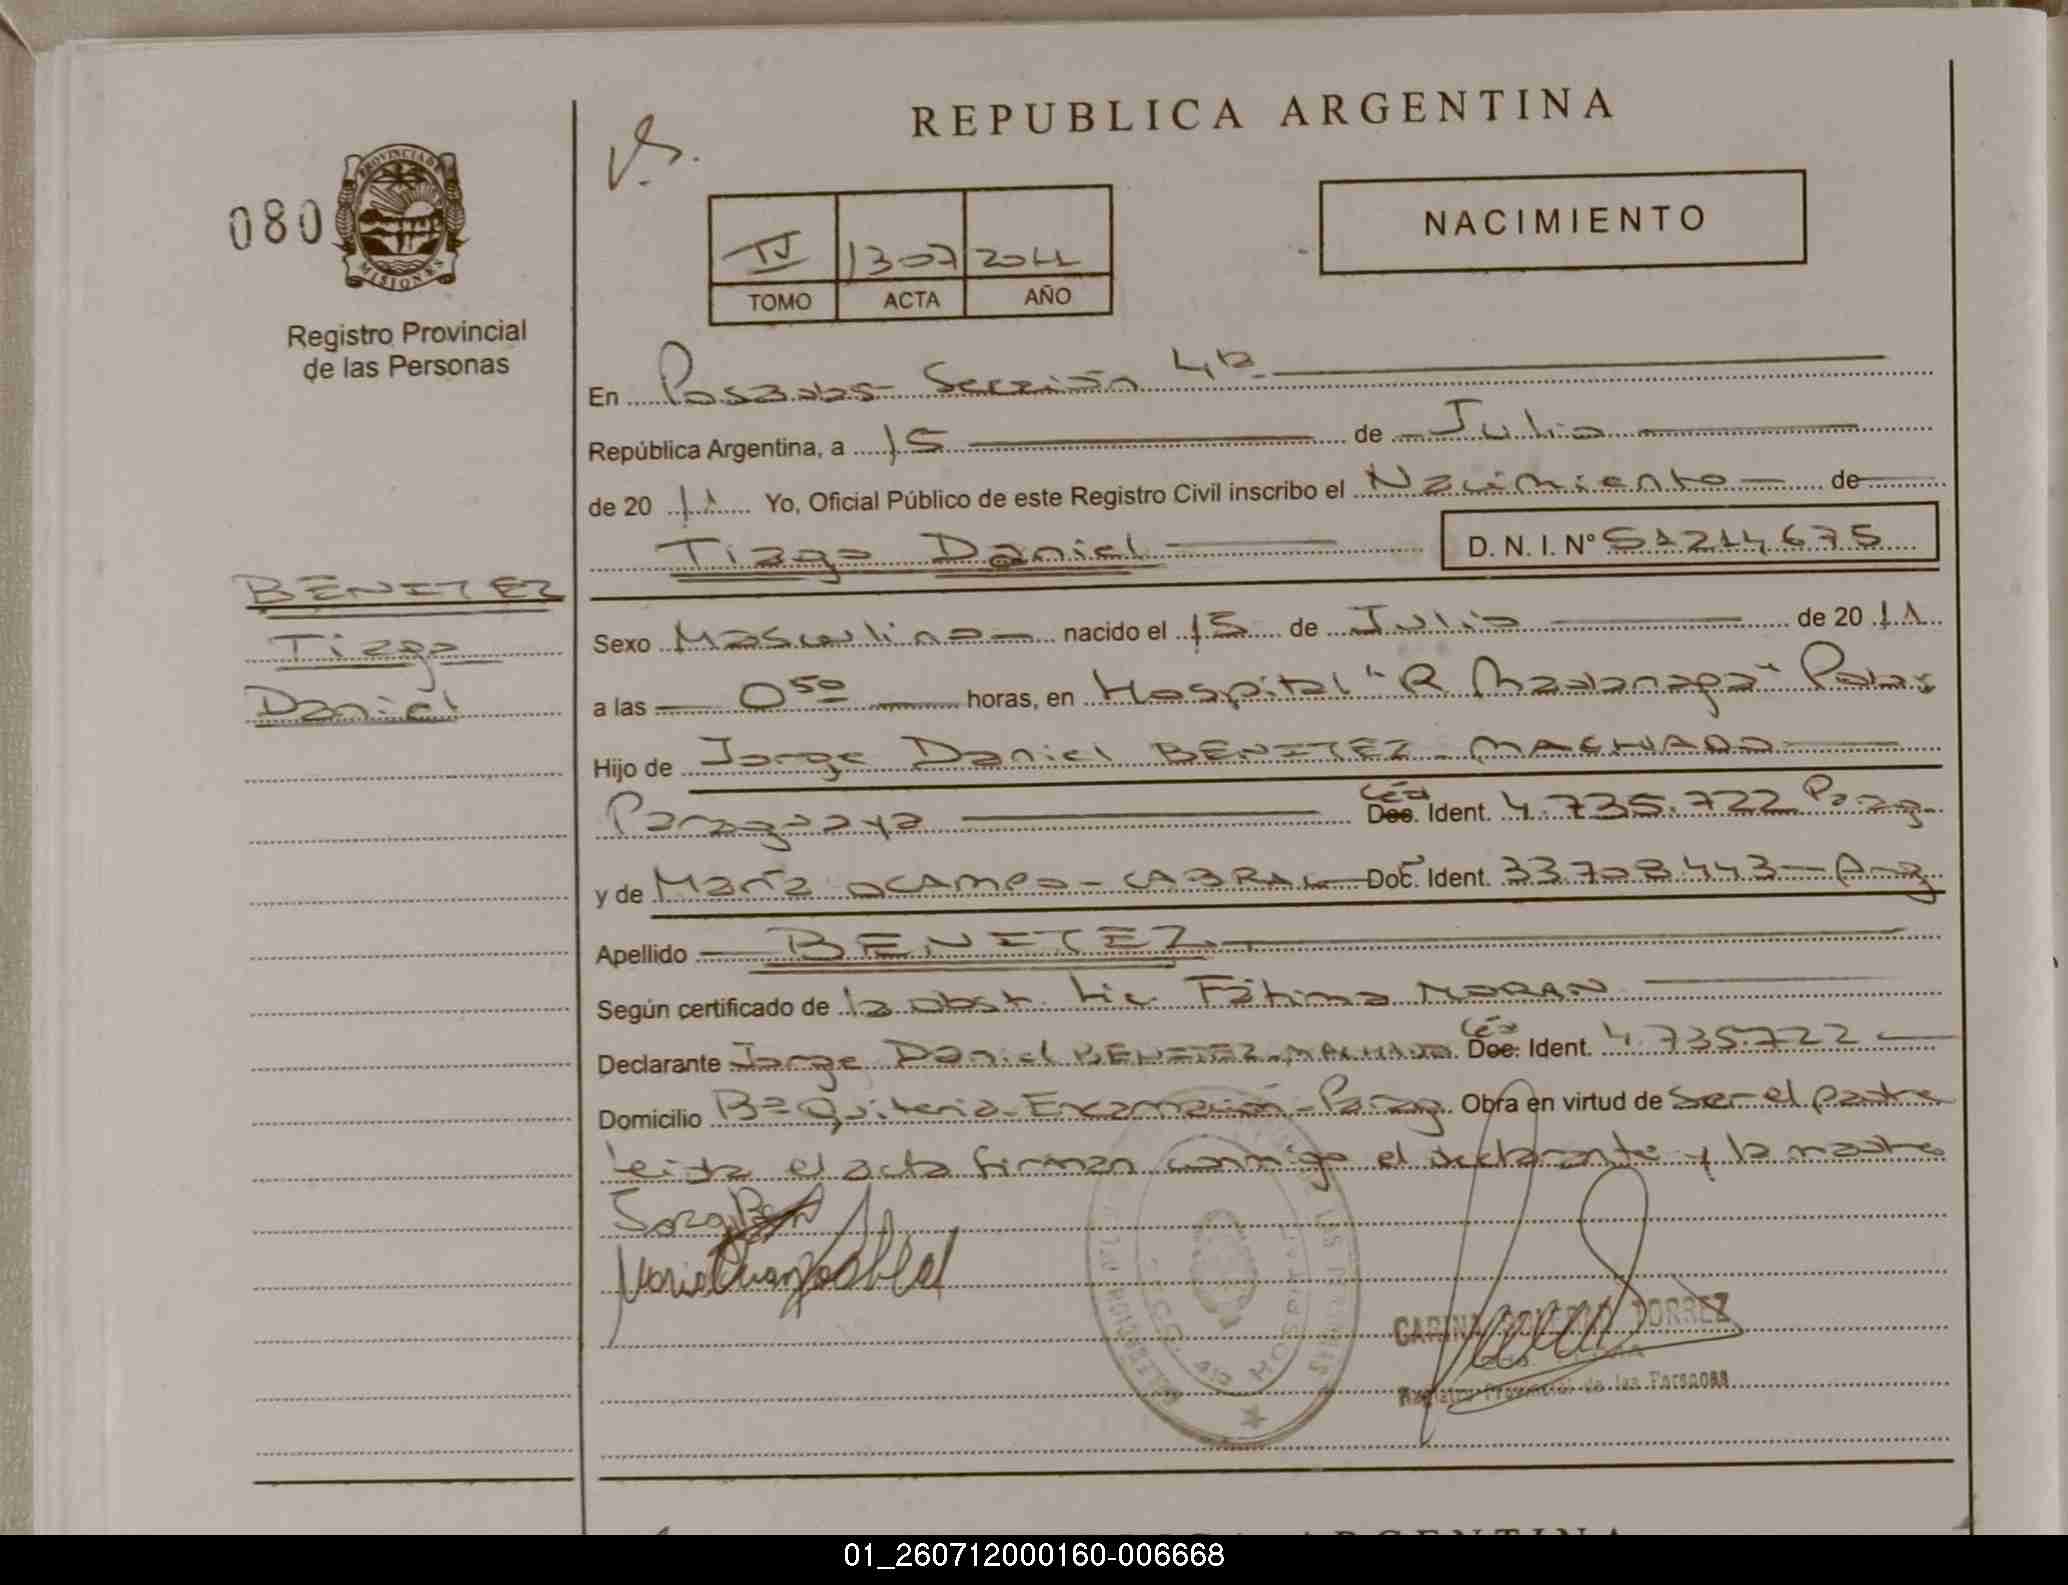 REPUBLICA ARGENTINA
080
PROVINCIA DE
MISIONES
Registro Provincial
de las Personas
NACIMIENTO
IV 1307 2011
TOMO ACTA AÑO
En Posadas Sección 4ta.
República Argentina, a 15 de Julio
de 20 11 Yo, Oficial Público de este Registro Civil inscribo el Nacimiento de
Tiago Daniel D. N. I. N° 51214675
BENITEZ
Tiago
Daniel
Sexo Masculino nacido el 15 de Julio de 20 11
a las 0 50 horas, en Hospital "R. Madariaga" Pdas
Hijo de Jorge Daniel BENITEZ - MACHADO
Paraguaya Céd Doc. Ident. 4.735.722 Parag.
y de María OCAMPO - CABRAL Doc. Ident. 33.708.443 - Arg
Apellido BENITEZ
Según certificado de la obst. Lic. Fátima MORAN
Declarante Jorge Daniel BENITEZ - MACHADO Céd Doc. Ident. 4.735.722
Domicilio B° Quiteria - Encarnación - Parag. Obra en virtud de ser el padre
Leída el acta firman conmigo el declarante y la madre
Jorge Ben
Maria Ocampo Cabral
TORREZ
Registro Provincial de las Personas
ARGENTINA
01_260712000160-006668